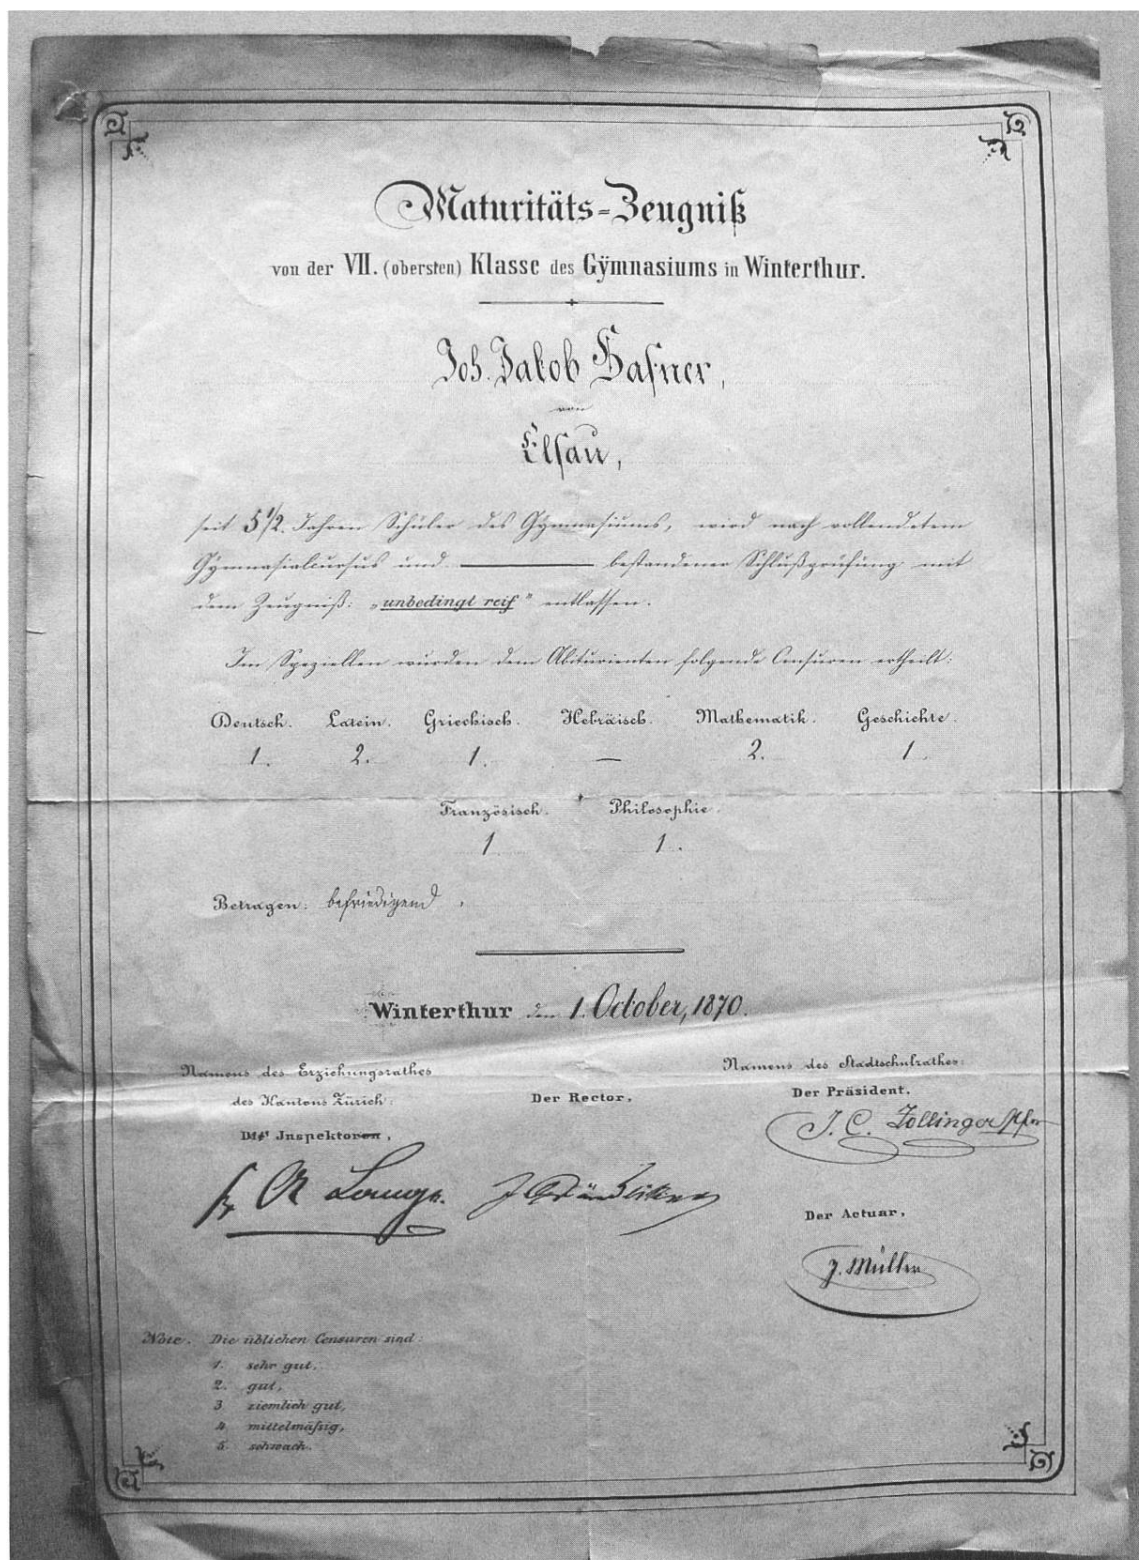 Maturitäts-Zeugniß
von der VII. (obersten) Klasse des Gÿmnasiums in Winterthur.
Joh. Jakob Hafner,
von
Elsau,
seit 5 1/2. Jahren Schüler des Gÿmnasiums, wird nach vollendetem
Gÿmnasialcursus und ——— bestandener Schlußprüfung mit
dem Zeugniß: „unbedingt reif" entlassen.
Im Speziellen wurden dem Abiturienten folgende Censuren ertheilt:
Deutsch. Latein. Griechisch. Hebräisch. Mathematik. Geschichte.
1. 2. 1. — 2. 1.
Französisch. Philosophie.
1 1.
Betragen: befriedigend.
Winterthur den 1. October, 1870.
Namens des Erziehungsrathes
des Kantons Zürich:
Der Inspektor,
Der Rector,
Namens des Stadtschulrathes:
Der Präsident.
J. C. Zollinger Pfr
Der Actuar,
J. Müller
Note. Die üblichen Censuren sind:
1. sehr gut,
2. gut,
3 ziemlich gut,
4 mittelmäßig,
5 schwach.